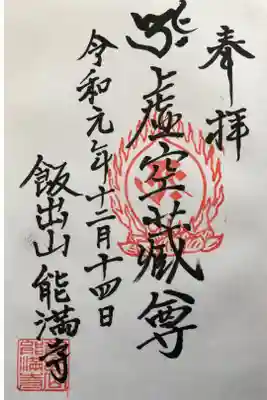 奉拝
虚空蔵尊
令和元年十二月十四日
飯出山 能満寺